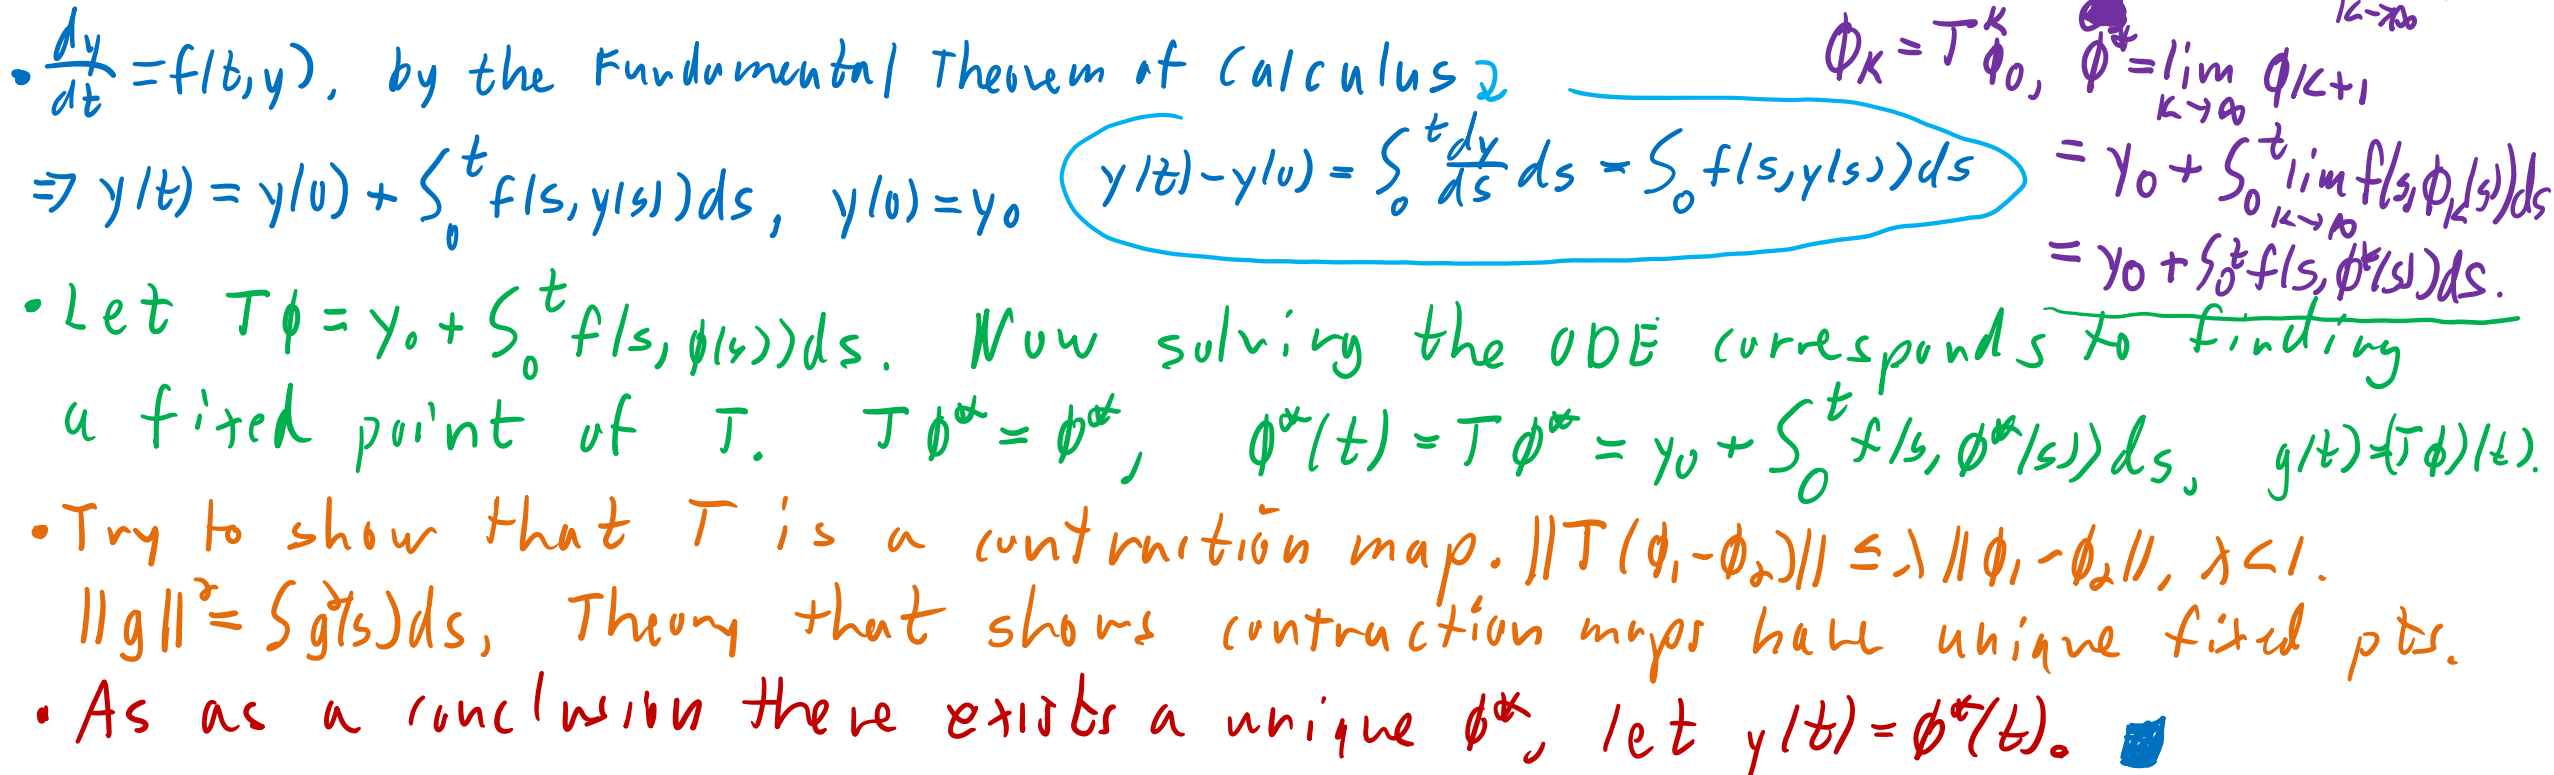 • dy/dt = f(t,y), by the Fundamental Theorem of Calculus
⇒ y(t) = y(0) + ∫₀ᵗ f(s,y(s))ds, y(0) = y₀
y(t) - y(0) = ∫₀ᵗ dy/ds ds = ∫₀ f(s,y(s))ds
k→∞
ϕ_k = T^k ϕ₀, ϕ* = lim_{k→∞} ϕ_{k+1}
= y₀ + ∫₀ᵗ lim_{k→∞} f(s,ϕ_k(s))ds
= y₀ + ∫₀ᵗ f(s,ϕ*(s))ds.
• Let Tϕ = y₀ + ∫₀ᵗ f(s,ϕ(s))ds. Now solving the ODE corresponds to finding
a fixed point of T. Tϕ* = ϕ*, ϕ*(t) = Tϕ* = y₀ + ∫₀ᵗ f(s,ϕ*(s))ds, g(t) = (Tϕ)(t).
• Try to show that T is a contraction map. ||T(ϕ₁-ϕ₂)|| ≤ λ||ϕ₁-ϕ₂||, λ<1.
||g||² = ∫g²(s)ds, Theory that shows contraction maps have unique fixed pts.
• As as a conclusion there exists a unique ϕ*, let y(t) = ϕ*(t).